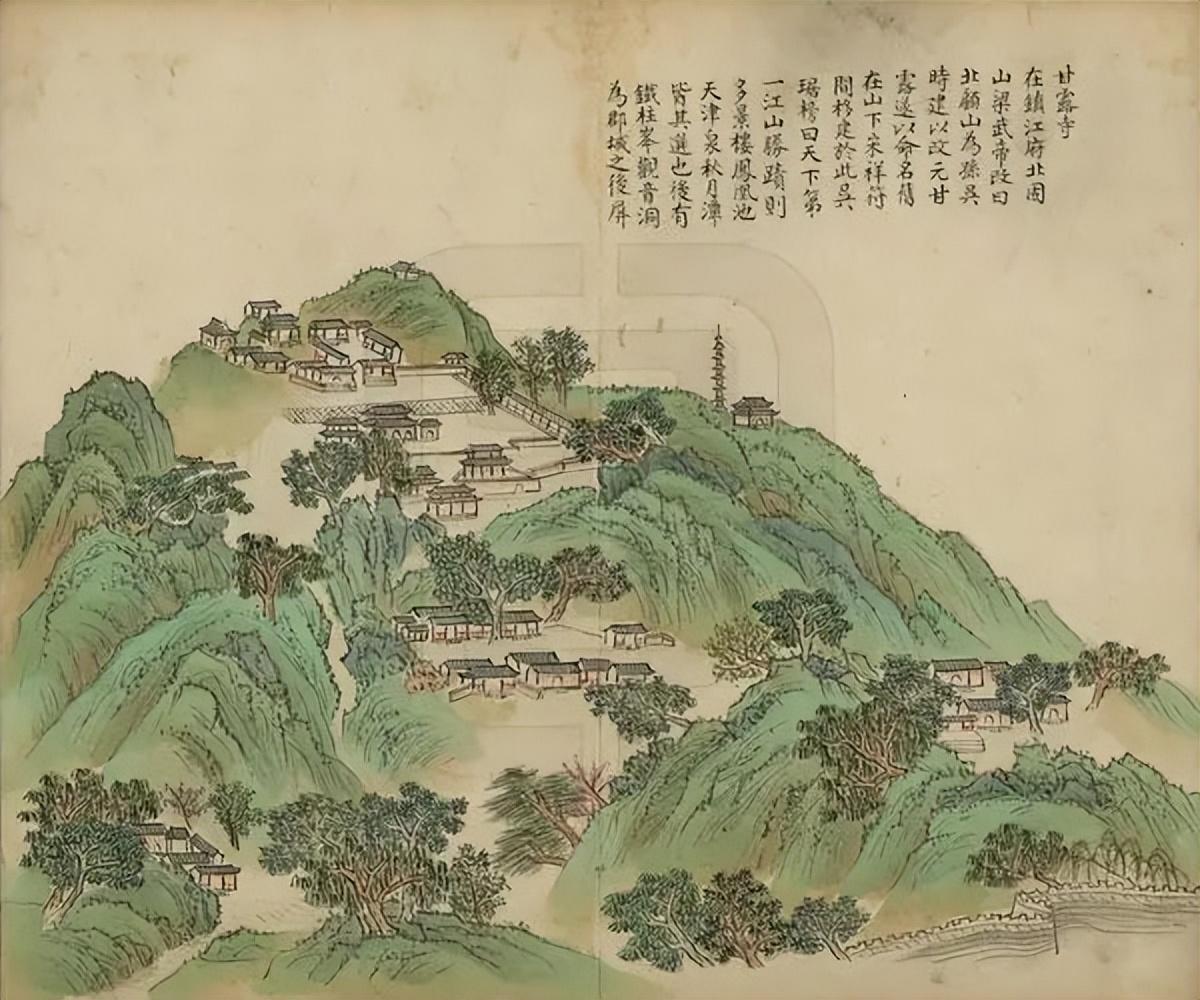 甘露寺
在鎮江府北固
山梁武帝改曰
北顧山為孫吳
時建以改元甘
露遂以命名舊
在山下宋祥符
間移建於此吳
琚榜曰天下第
一江山勝蹟則
多景樓鳳凰池
天津泉秋月潭
皆其遺也後有
鐵柱峯觀音洞
為郡城之後屏